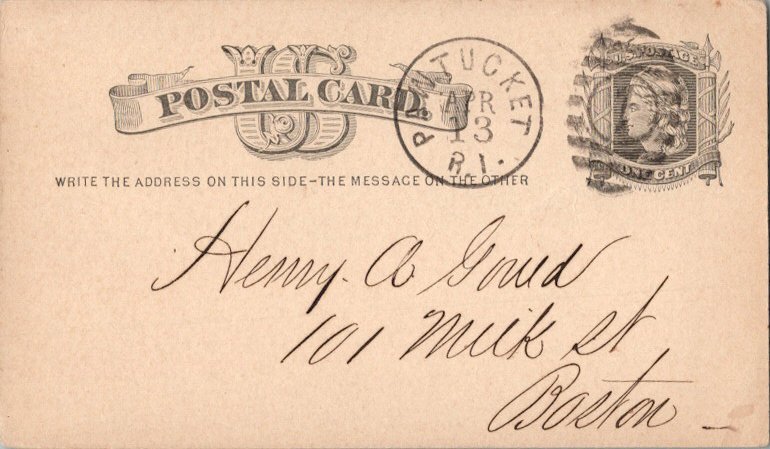 US
POSTAL CARD.
PAWTUCKET
APR
13
R.I.
U.S. POSTAGE
ONE CENT
WRITE THE ADDRESS ON THIS SIDE-THE MESSAGE ON THE OTHER
Henry. A Gould
101 Milk St
Boston